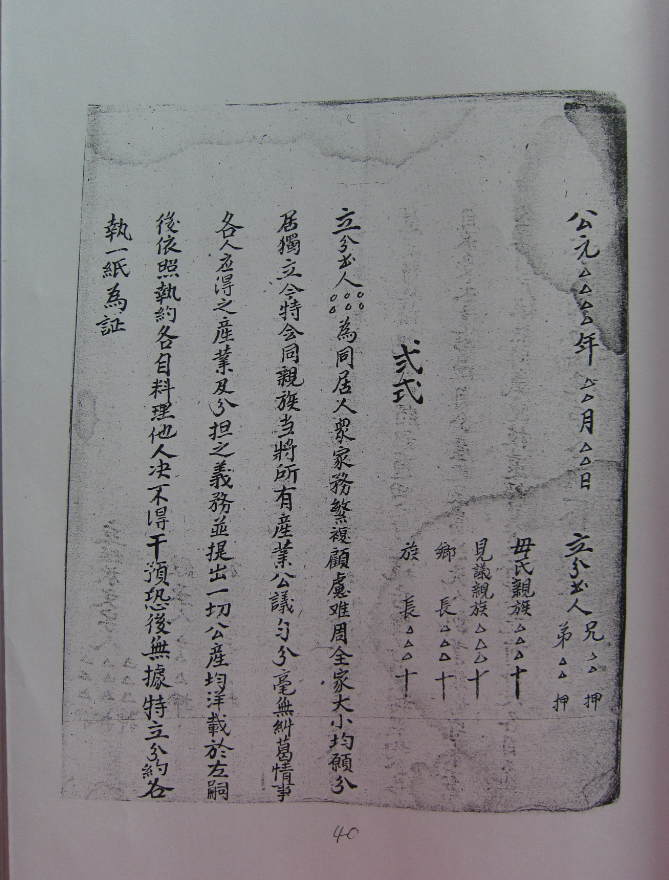 公元△△△△年 △△月△△日 立分书人 兄△△押
弟△△押
毋氏親族△△△十
見議親族△△△十
鄉 長△△△十
族 長△△△十
弍式
立分书人○○○△○○為同居人衆家務繁複顧慮难周全家大小均願分
居獨立今特会同親族当將所有産業公議匀分毫無糾葛情事
各人应得之産業及分担之義務並提出一切公産均洋載於左嗣
後依照執約各自料理他人决不得干預恐後無據特立分約各
執一紙為証
40